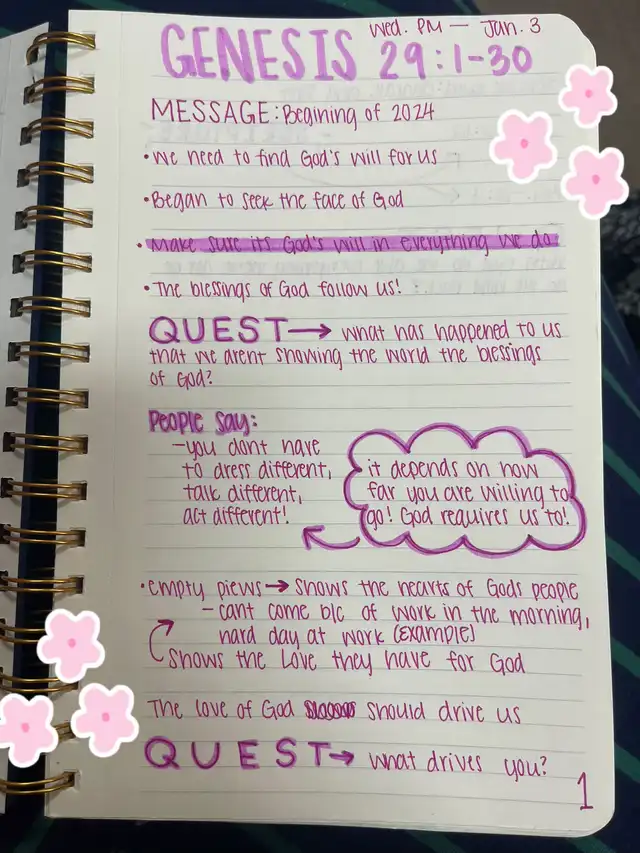 Wed. PM — Jan. 3
GENESIS 29:1-30
MESSAGE: Begining of 2024
• We need to find God's will for us
• Began to seek the face of God
• Make sure its God's will in everything we do
• The blessings of God follow us!
QUEST → what has happened to us
that we arent showing the world the blessings
of God?
People say:
- you dont have
to dress different,
talk different,
act different!
it depends on how
far you are willing to
go! God requires us to!
• empty piews → shows the hearts of Gods people
- cant come b/c of work in the morning,
hard day at work (example)
shows the love they have for God
The love of God should drive us
QUEST → what drives you?
1